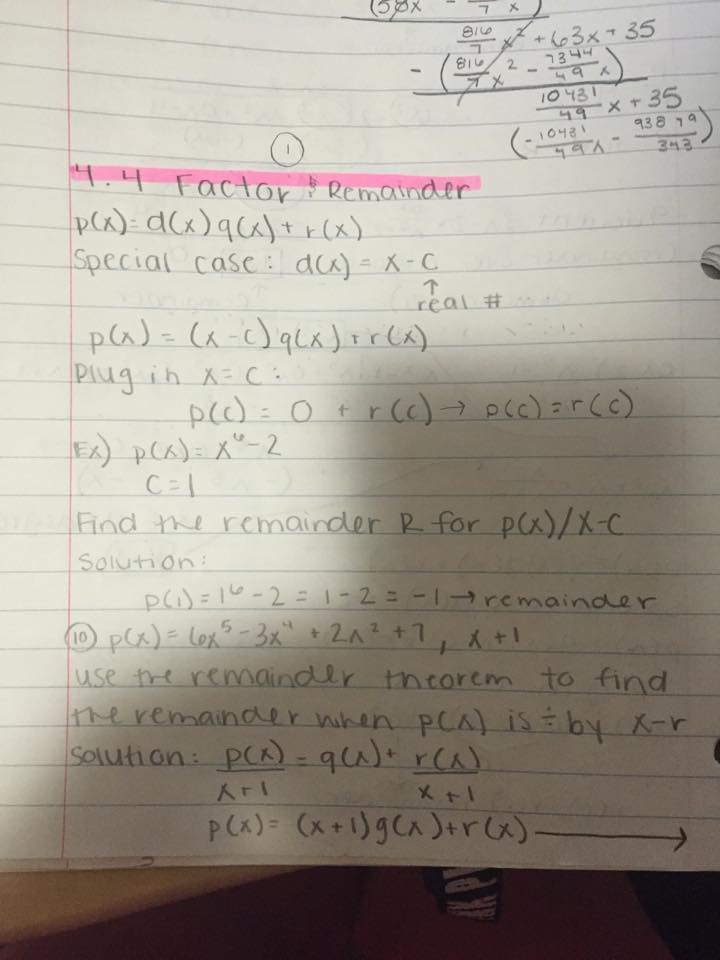 (58x - /7 x)
816/7 x² + 63x + 35
- (816/7 x² - 7344/49 x)
10431/49 x + 35
(-10431/49 x - 93879/343)
1
4.4 Factor & Remainder
p(x) = d(x) q(x) + r(x)
Special case: d(x) = x - c
↑
real #
p(x) = (x - c) q(x) + r(x)
Plug in x = c :
p(c) = 0 + r(c) → p(c) = r(c)
Ex) p(x) = x⁶ - 2
C = 1
Find the remainder R for p(x)/x-c
Solution:
p(1) = 1⁶ - 2 = 1 - 2 = -1 → remainder
10 p(x) = 6x⁵ - 3x⁴ + 2x² + 7, x + 1
use the remainder theorem to find
the remainder when p(x) is ÷ by x-r
Solution: p(x)/x+1 = q(x) + r(x)/x+1
p(x) = (x+1) q(x) + r(x) →